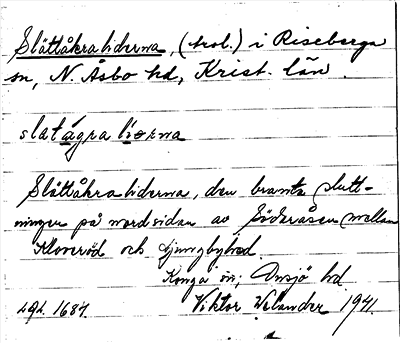 Slättåkraliderna, (trol.) i Riseberga
sn, N. Åsbo hd, Krist. län.
slatågra liorna
Slättåkraliderna, den branta slutt-
ningen på nordsidan av Söderåsen mellan
Klöveröd och Ljungbyhed.
Konga sn; Onsjö hd.
LAL. 1687. Viktor Velander 1941.